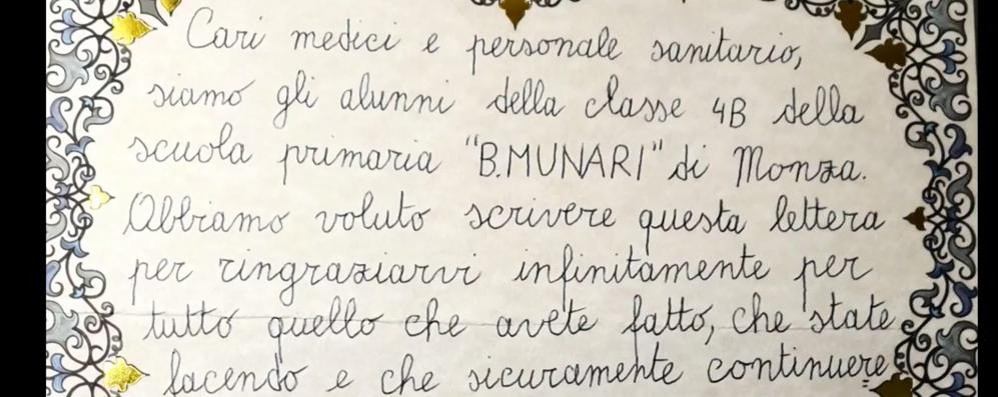 Cari medici e personale sanitario,
siamo gli alunni della classe 4B della
scuola primaria "B.MUNARI" di Monza.
Abbiamo voluto scrivere questa lettera
per ringraziarvi infinitamente per
tutto quello che avete fatto, che state
facendo e che sicuramente continuere=